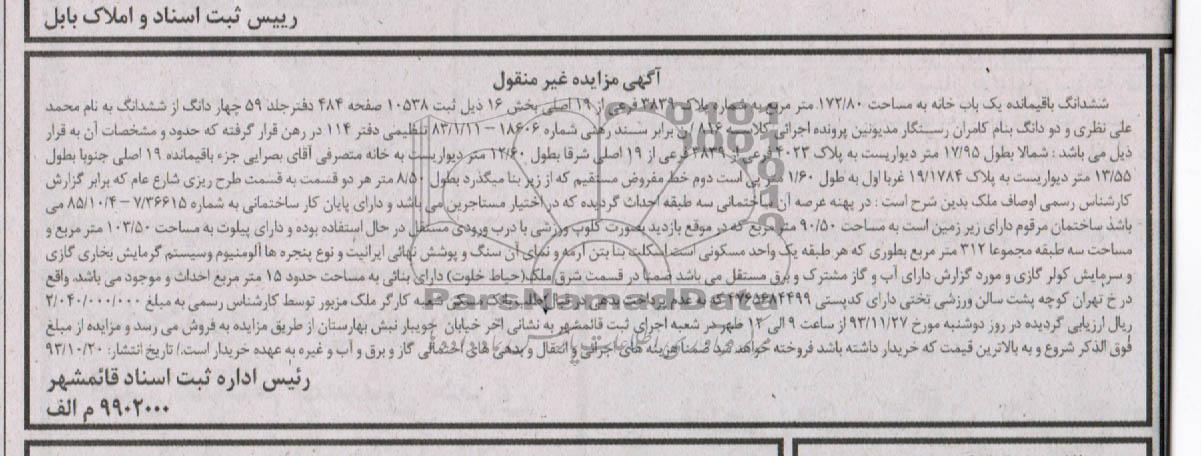 رییس ثبت اسناد و املاک بابل
آگهی مزایده غیر منقول
ششدانگ باقیمانده یک باب خانه به مساحت ۱۷۲/۸۰ متر مربع به شماره پلاک ۳۸۳۹ فرعی از ۱۹ اصلی بخش ۱۶ ذیل ثبت ۱۰۵۳۸ صفحه ۴۸۴ دفترجلد ۵۹ چهار دانگ از ششدانگ به نام محمد
علی نظری و دو دانگ بنام کامران رستگار مدیونین پرونده اجرائی کلاسه ۸۱۶ /ن برابر سند رهنی شماره ۱۸۶۰۶ – ۸۳/۱/۱۱ تنظیمی دفتر ۱۱۴ در رهن قرار گرفته که حدود و مشخصات آن به قرار
ذیل می باشد : شمالا بطول ۱۷/۹۵ متر دیواریست به پلاک ۴۰۲۳ فرعی از ۳۸۳۹ فرعی از ۱۹ اصلی شرقا بطول ۱۲/۶۰ متر دیواریست به خانه متصرفی آقای بصرایی جزء باقیمانده ۱۹ اصلی جنوبا بطول
۱۳/۵۵ متر دیواریست به پلاک ۱۹/۱۷۸۴ غربا اول به طول ۱/۶۰ متر پی است دوم خط مفروض مستقیم که از زیر بنا میگذرد بطول ۸/۵۰ متر هر دو قسمت به قسمت طرح ریزی شارع عام که برابر گزارش
کارشناس رسمی اوصاف ملک بدین شرح است : در پهنه عرصه آن ساختمانی سه طبقه احداث گردیده که در اختیار مستاجرین می باشد و دارای پایان کار ساختمانی به شماره ۷/۳۶۶۱۵ – ۸۵/۱۰/۴ می
باشد ساختمان مرقوم دارای زیر زمین است به مساحت ۹۰/۵۰ متر مربع که در موقع بازدید بصورت کلوپ ورزشی با درب ورودی مستقل در حال استفاده بوده و دارای پیلوت به مساحت ۱۰۳/۵۰ متر مربع و
مساحت سه طبقه مجموعا ۳۱۲ متر مربع بطوری که هر طبقه یک واحد مسکونی است اسکلت بنا بتن آرمه و نمای آن سنگ و پوشش نهائی ایرانیت و نوع پنجره ها آلومنیوم وسیستم گرمایش بخاری گازی
و سرمایش کولر گازی و مورد گزارش دارای آب و گاز مشترک و برق مستقل می باشد ضمنا در قسمت شرق ملک(حیاط خلوت) دارای بنائی به مساحت حدود ۱۵ متر مربع احداث و موجود می باشد. واقع
در خ تهران کوچه پشت سالن ورزشی تختی دارای کدپستی ۴۷۶۵۶۸۴۴۹۹ که به عدم پرداخت بدهی در قبال طلب بانک مسکن شعبه کارگر ملک مزبور توسط کارشناس رسمی به مبلغ ۲/۰۴۰/۰۰۰/۰۰۰
ریال ارزیابی گردیده در روز دوشنبه مورخ ۹۳/۱۱/۲۷ از ساعت ۹ الی ۱۲ ظهر در شعبه اجرای ثبت قائمشهر به نشانی آخر خیابان جویبار نبش بهارستان از طریق مزایده به فروش می رسد و مزایده از مبلغ
فوق الذکر شروع و به بالاترین قیمت که خریدار داشته باشد فروخته خواهد شد ضمنا هزینه های اجرائی و انتقال و بدهی های احتمالی گاز و برق و آب و غیره به عهده خریدار است./ تاریخ انتشار: ۹۳/۱۰/۲۰
رئیس اداره ثبت اسناد قائمشهر
۹۹۰۲۰۰۰ م الف
ParsNamadData